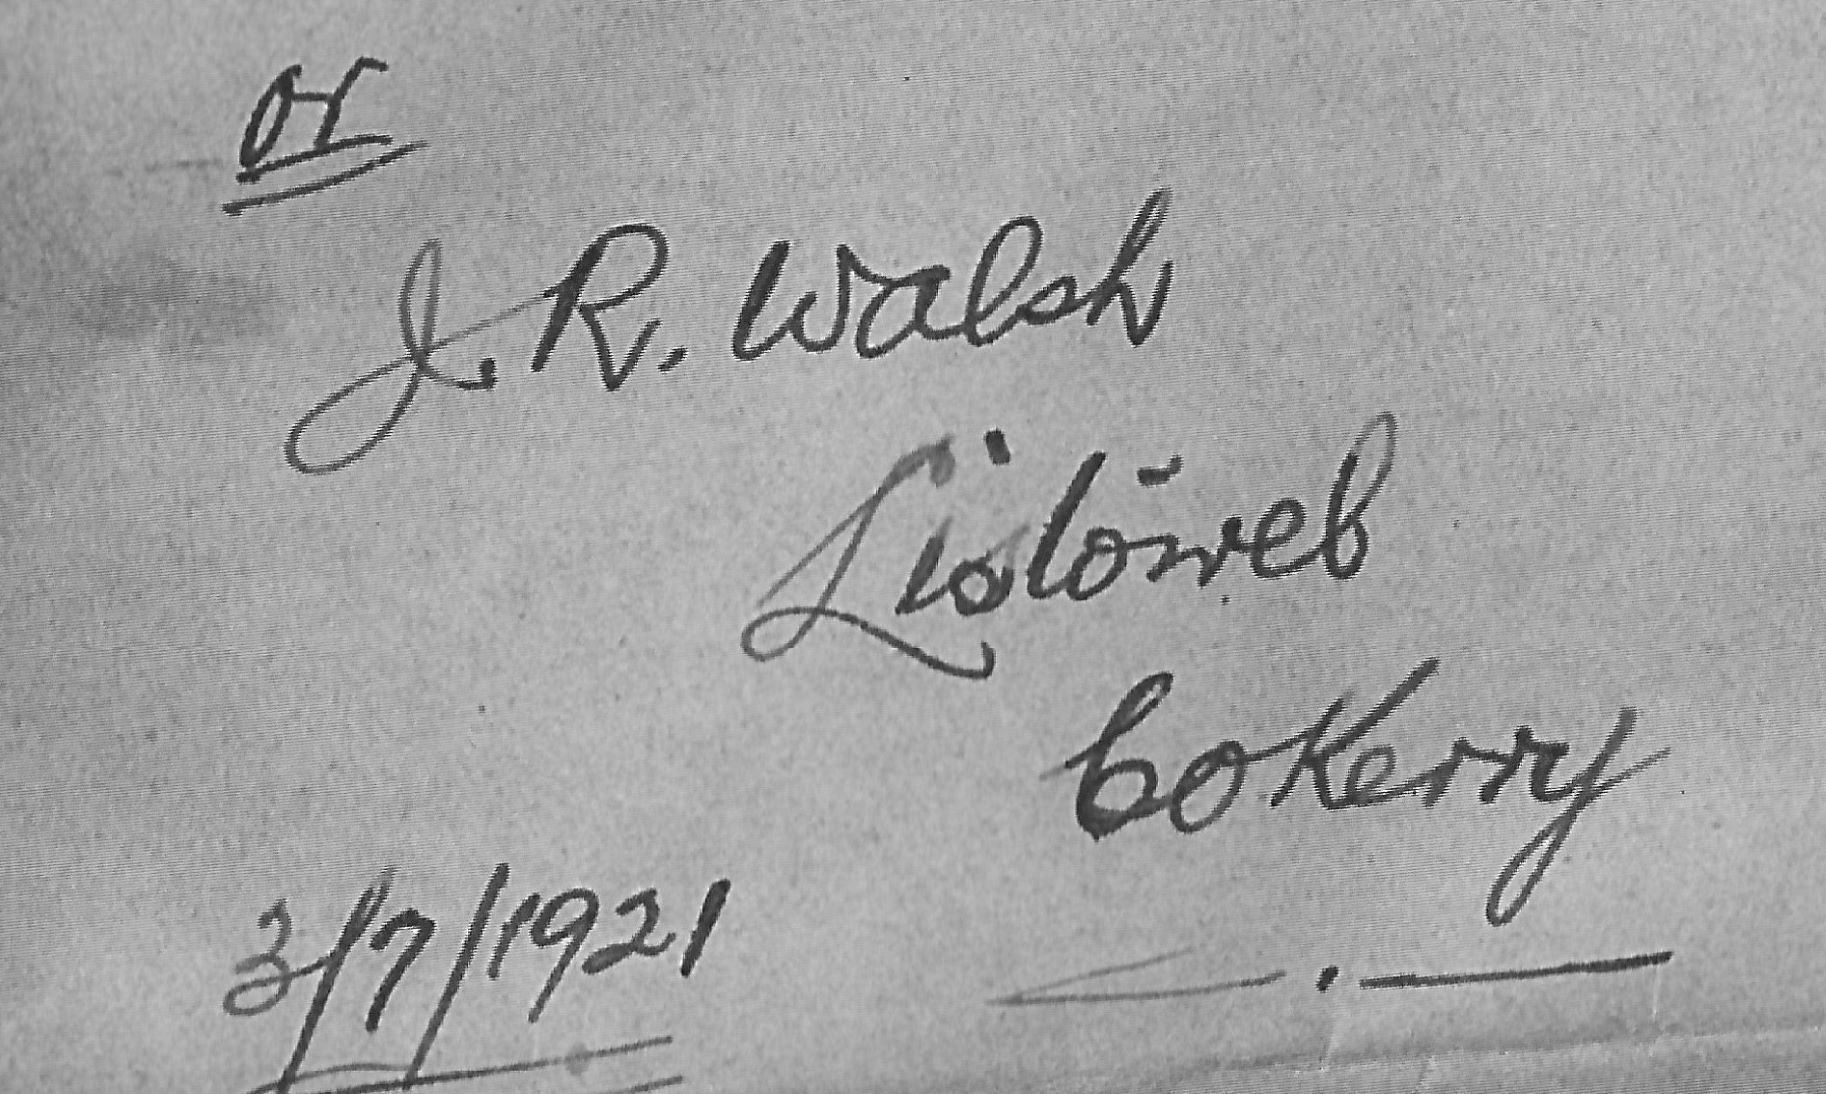 or
J. R. Walsh
Listowel
Co Kerry
3/7/1921